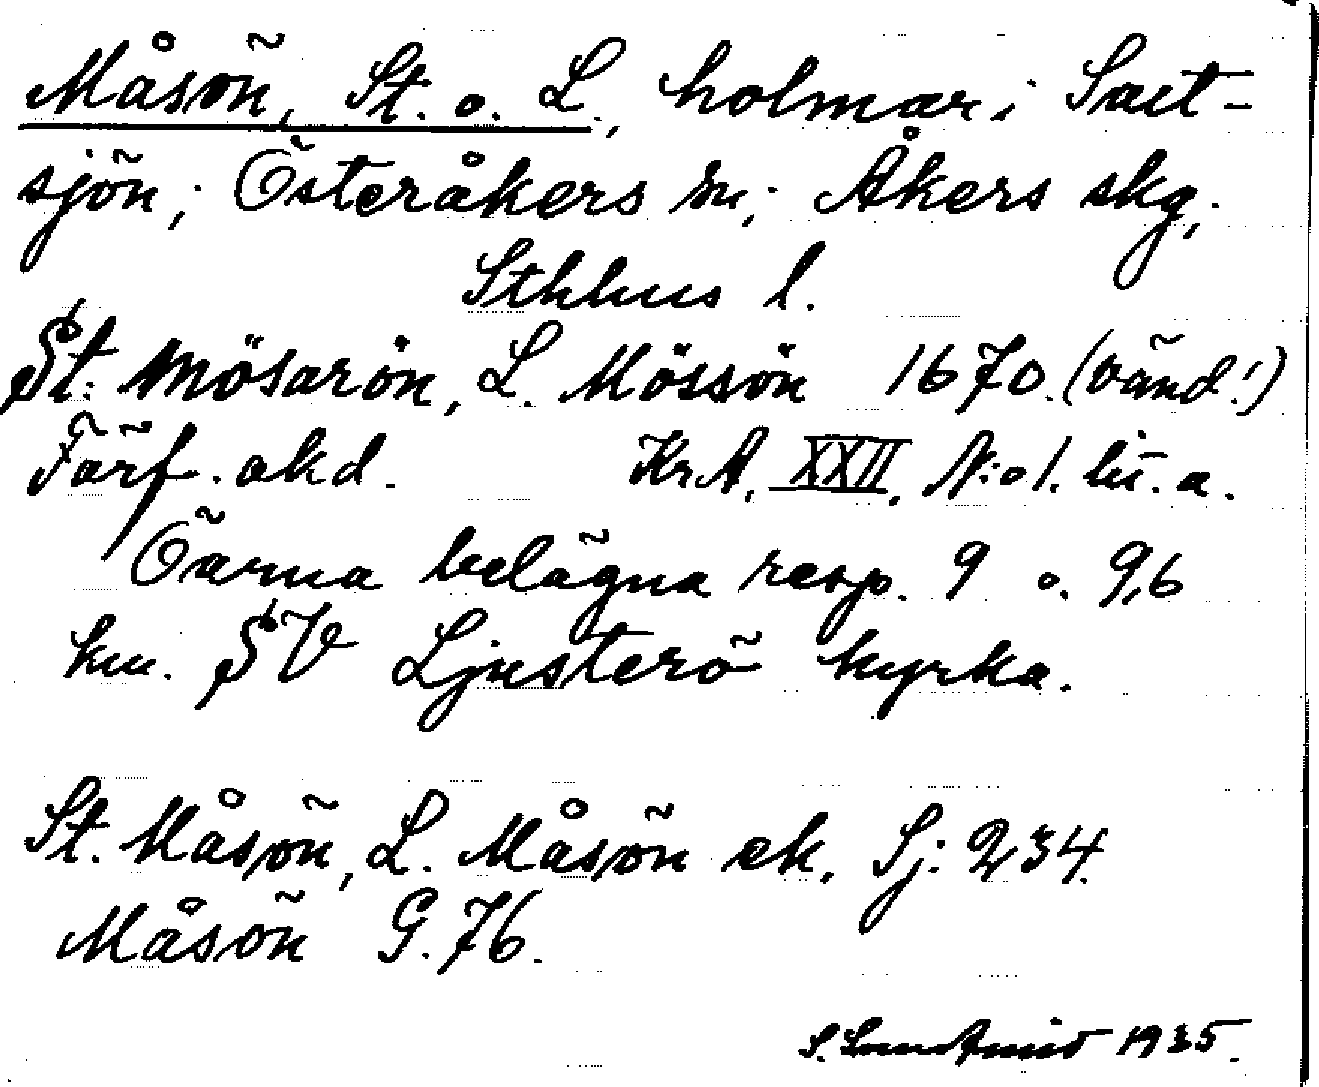 Måsön, St. o. L., holmar i Salt-
sjön; Österåkers sn; Åkers skg,
Sthlms l.
St. Mösarön, L. Mössön 1670. (vänd!)
Förf. okd. KrA, XXII, N:o 1. lit. a.
Öarna belägna resp. 9 o. 9,6
km. SV Ljusterö kyrka.
St. Måsön, L. Måsön ek. Sj: 234.
Måsön G. 76.
S. 1935.